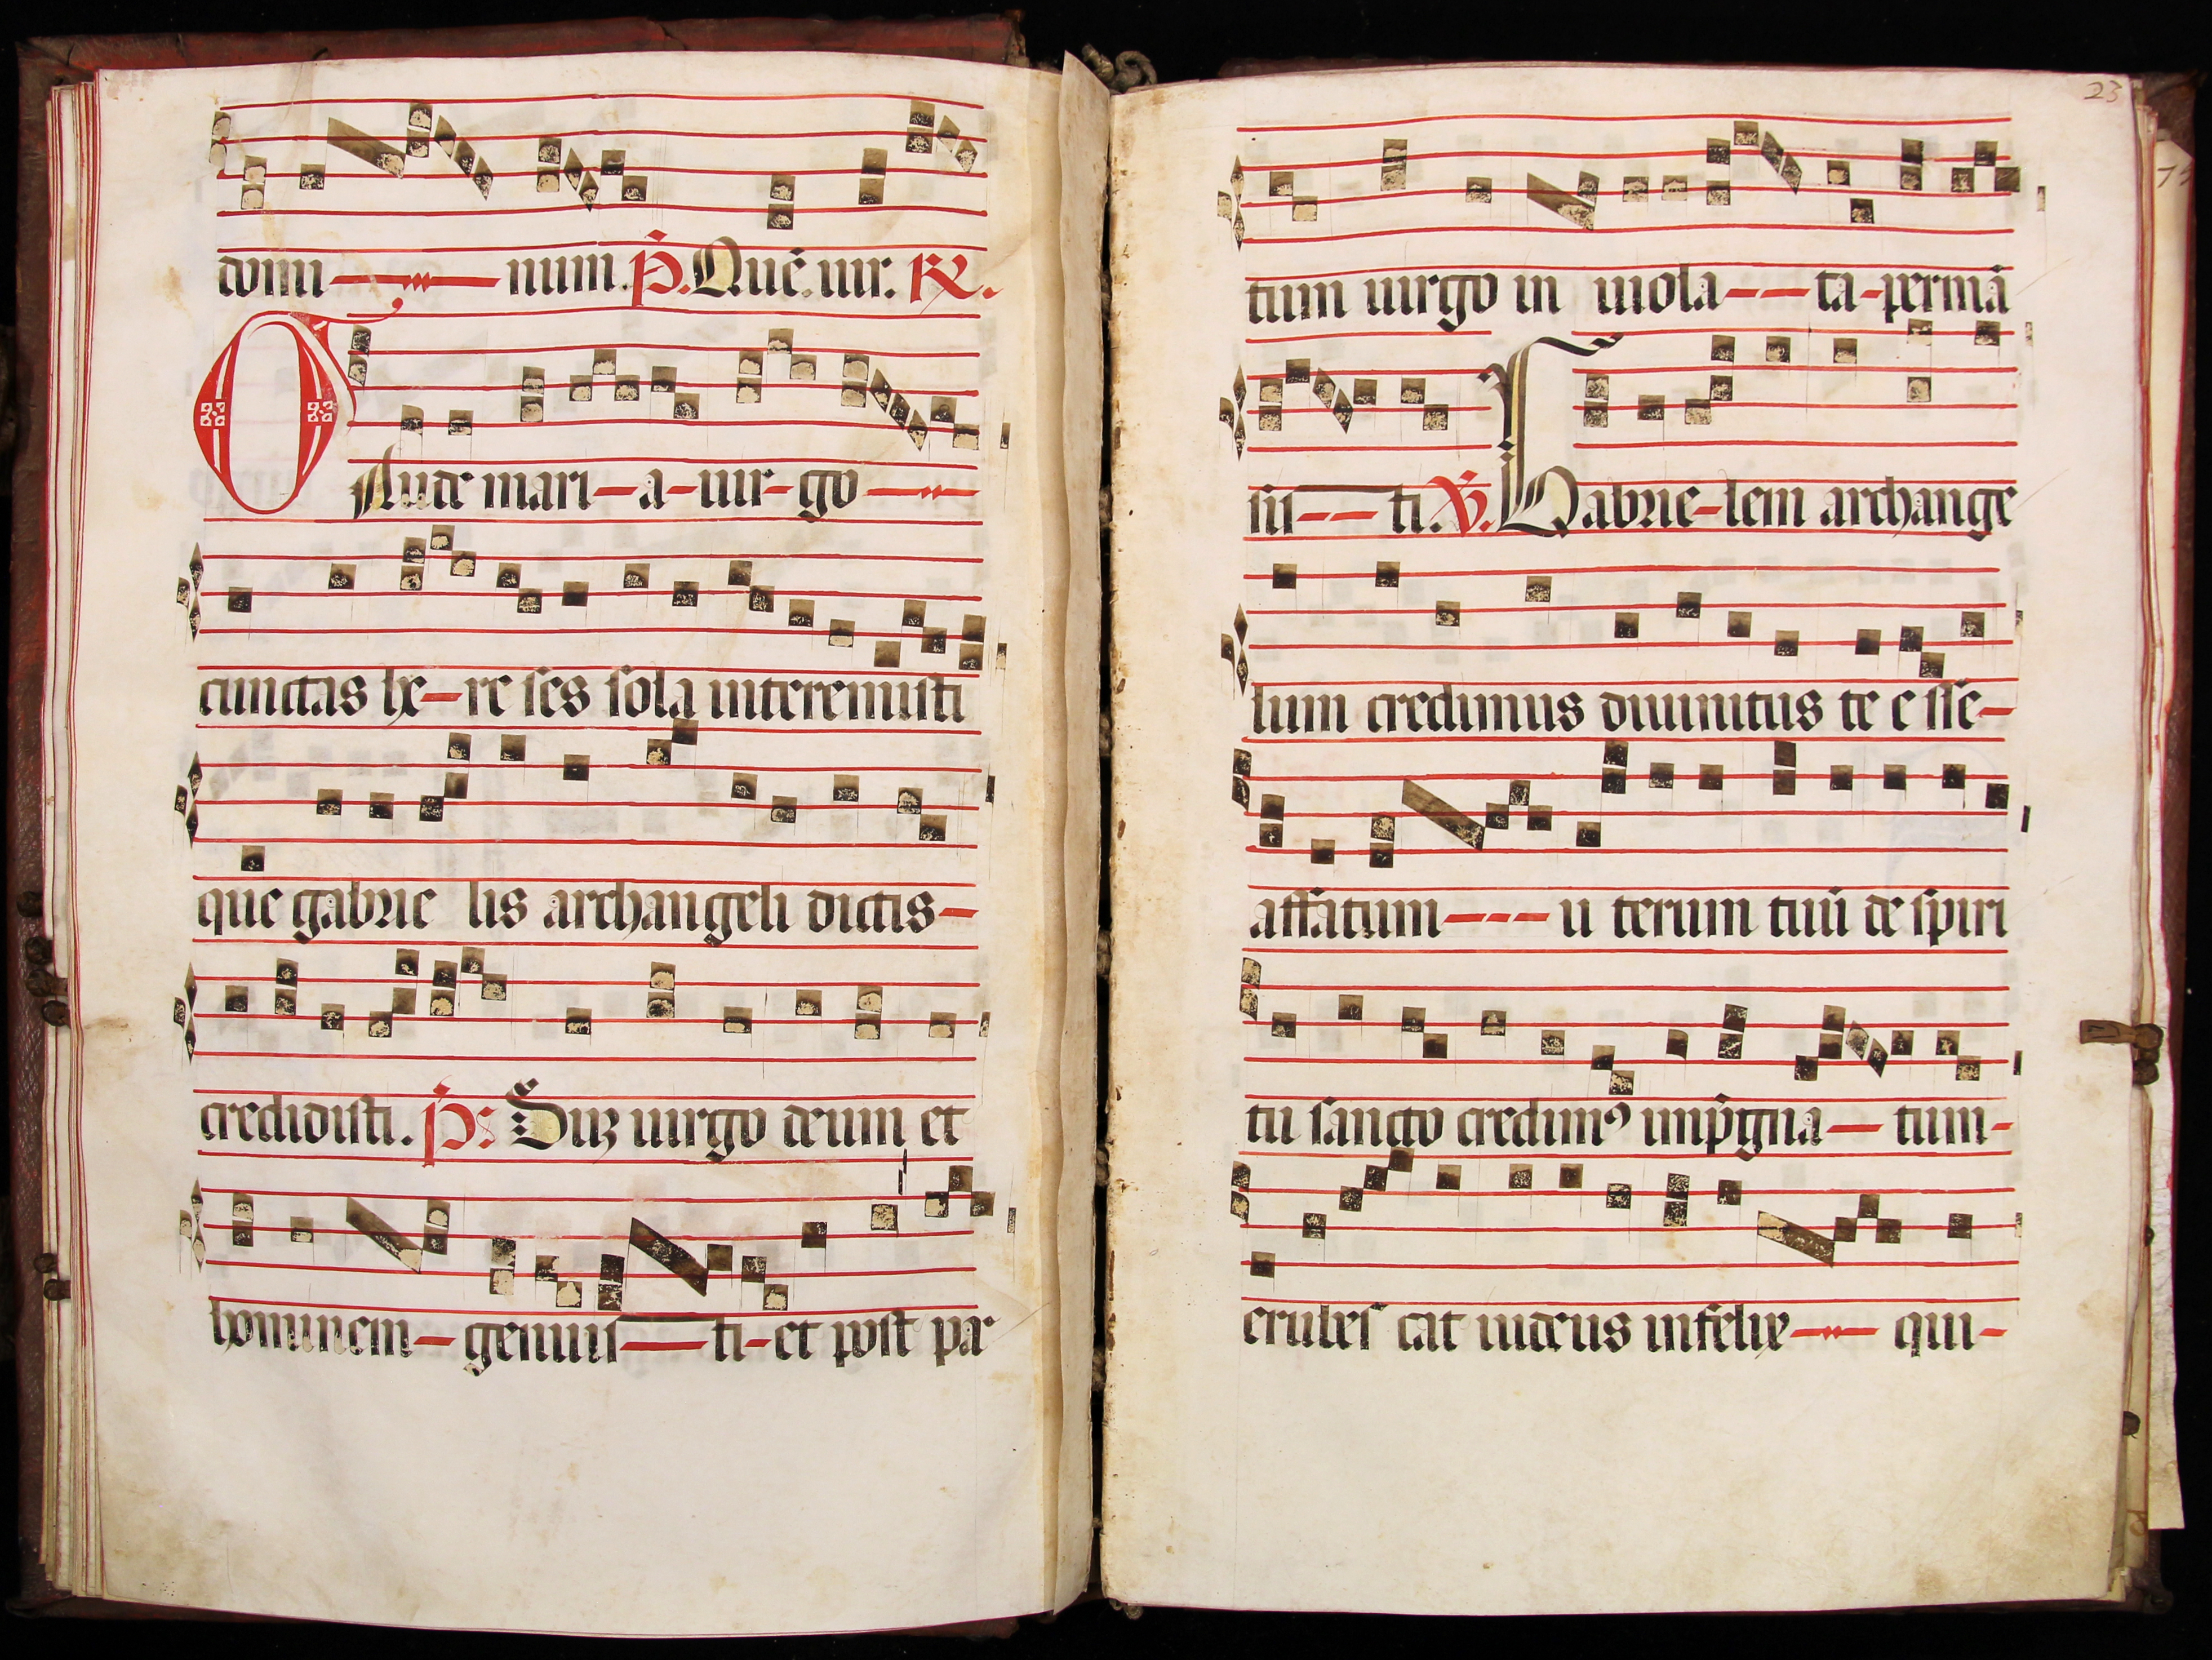 domi num. P. Quē. uir. R.
GAude mari-a-uir-go
cunctas he-re ses sola interemisti
que gabrie lis archangeli dictis-
credidisti. P: Dūz uirgo deum et
hominem-genuis-ti-et post par
23
tum uirgo in uiola---ta-permā
sis---ti. V. Gabrie-lem archange
lum credimus diuinitus te e sse-
affatum--- u terum tuū de spiri
tu sancto credim9 imp̄gna-tum-
erubes cat iudeus infelix- qui-